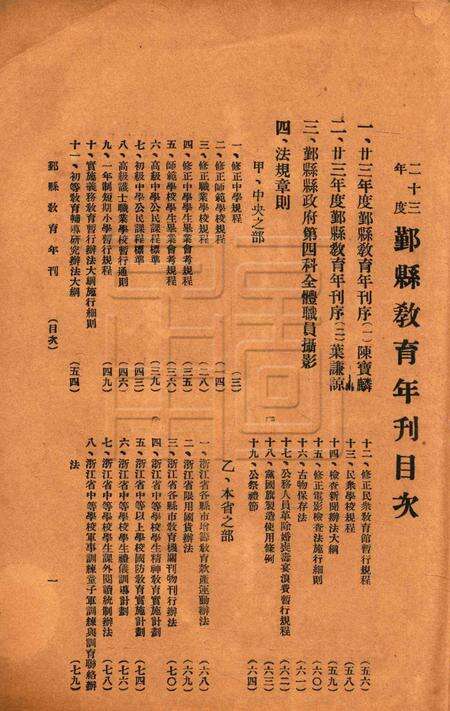 二十三年度鄞縣教育年刊目次
一、廿三年度鄞縣教育年刊序(一)陳寶麟
二、廿三年度鄞縣教育年刊序(二)葉謙諒
三、鄞縣縣政府第四科全體職員攝影
四、法規章則
甲、中央之部
一、修正中學規程 (三)
二、修正師範學校規程 (一四)
三、修正職業學校規程 (二八)
四、修正中學學生畢業會考規程 (三五)
五、師範學校學生畢業會考規程 (三六)
六、高級中學公民課程標準 (三九)
七、初級中學公民課程標準 (四三)
八、高級護士職業學校暫行通則 (四六)
九、一年制短期小學暫行規程 (四九)
十、實施義務教育暫行辦法大綱施行細則
十一、初等教育輔導研究辦法大綱 (五四)
十二、修正民衆教育館暫行規程 (五六)
十三、民衆學校規程 (五八)
十四、檢查新聞辦法大綱 (五九)
十五、修正電影檢查法施行細則 (六〇)
十六、古物保存法 (六一)
十七、公務人員革除婚喪壽宴浪費暫行規程 (六二)
十八、黨國旗製造使用條例 (六三)
十九、公祭禮節 (六四)
乙、本省之部
一、浙江省各縣市增籌教育欵產運動辦法 (六八)
二、浙江省限用國貨辦法 (六九)
三、浙江省各縣市教育機關刊物刊行辦法 (七〇)
四、浙江省中等學校學生精神教育實施計劃
五、浙江省中等以上學校國防教育實施計劃 (七四)
六、浙江省中等學校學生禮儀訓導計劃 (七六)
七、浙江省中等學校學生課外閱讀統制辦法 (七八)
八、浙江省中等學校軍事訓練童子軍訓練與訓育聯絡辦
法 (七九)
鄞縣教育年刊 (目次)
一